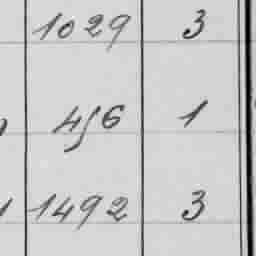 1029 3
456 1
1492 3